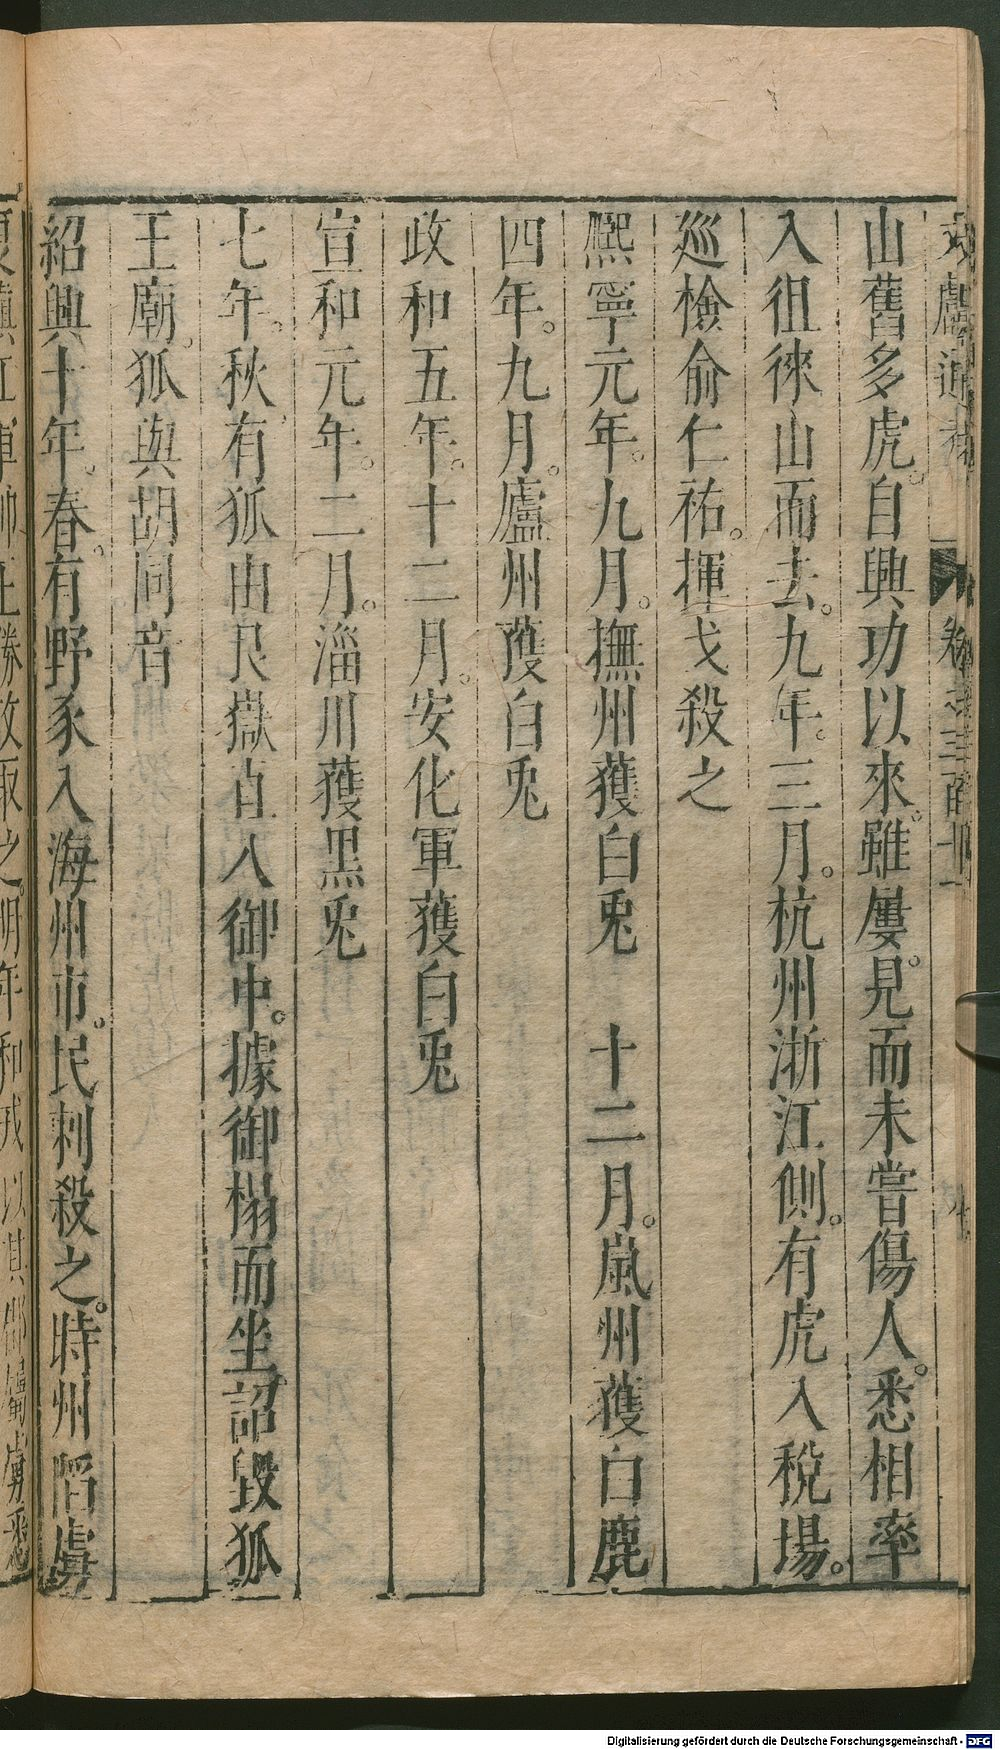 山舊多虎。自興功以來。雖屢。見而未嘗傷人。悉相率
入徂徠山而去。九年。三月。杭州浙江側。有虎入稅場。
巡檢俞仁祐。揮戈殺之
熈寧元年。九月。撫州獲白兎　十二月。嵐州獲白鹿
四年。九月。廬州獲白兎
政和五年。十二月。安化軍獲白兎
宣和元年。二月。淄川獲黑兎
七年。秋。有狐由艮嶽直入御中。據御榻而坐。詔毀狐
王廟。狐與胡同音
紹興十年。春。有野豕入海州市。民刺殺之。時州陷虜
Digitalisierung gefördert durch die Deutsche Forschungsgemeinschaft - DFG